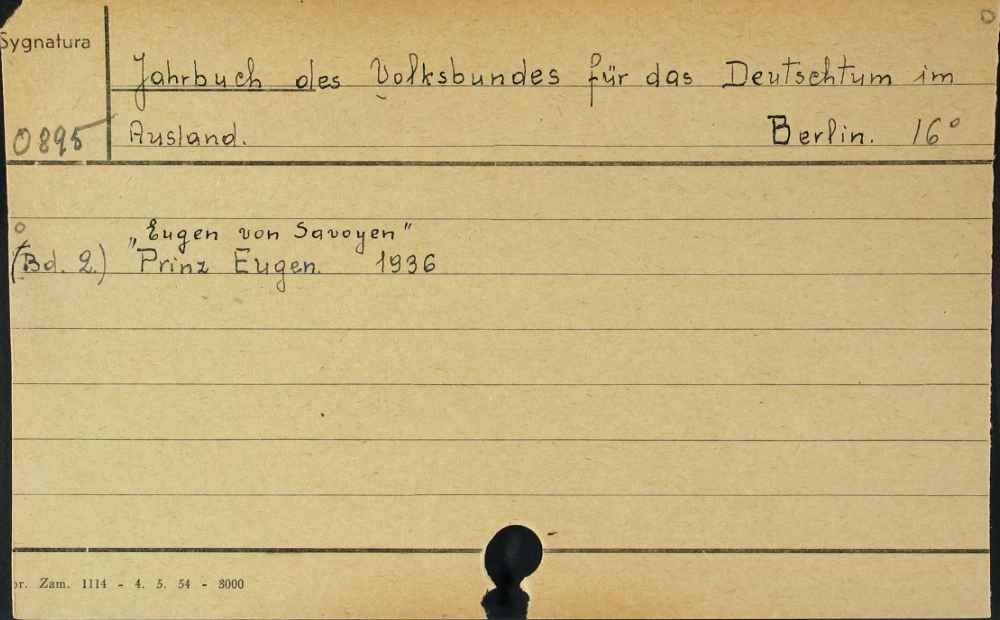 Sygnatura
Jahrbuch des Volksbundes für das Deutschtum im
0895 Ausland. Berlin. 16°
"Eugen von Savoyen"
(Bd. 2.) Prinz Eugen. 1936
Zam. 1114 - 4. 5. 54 - 8000